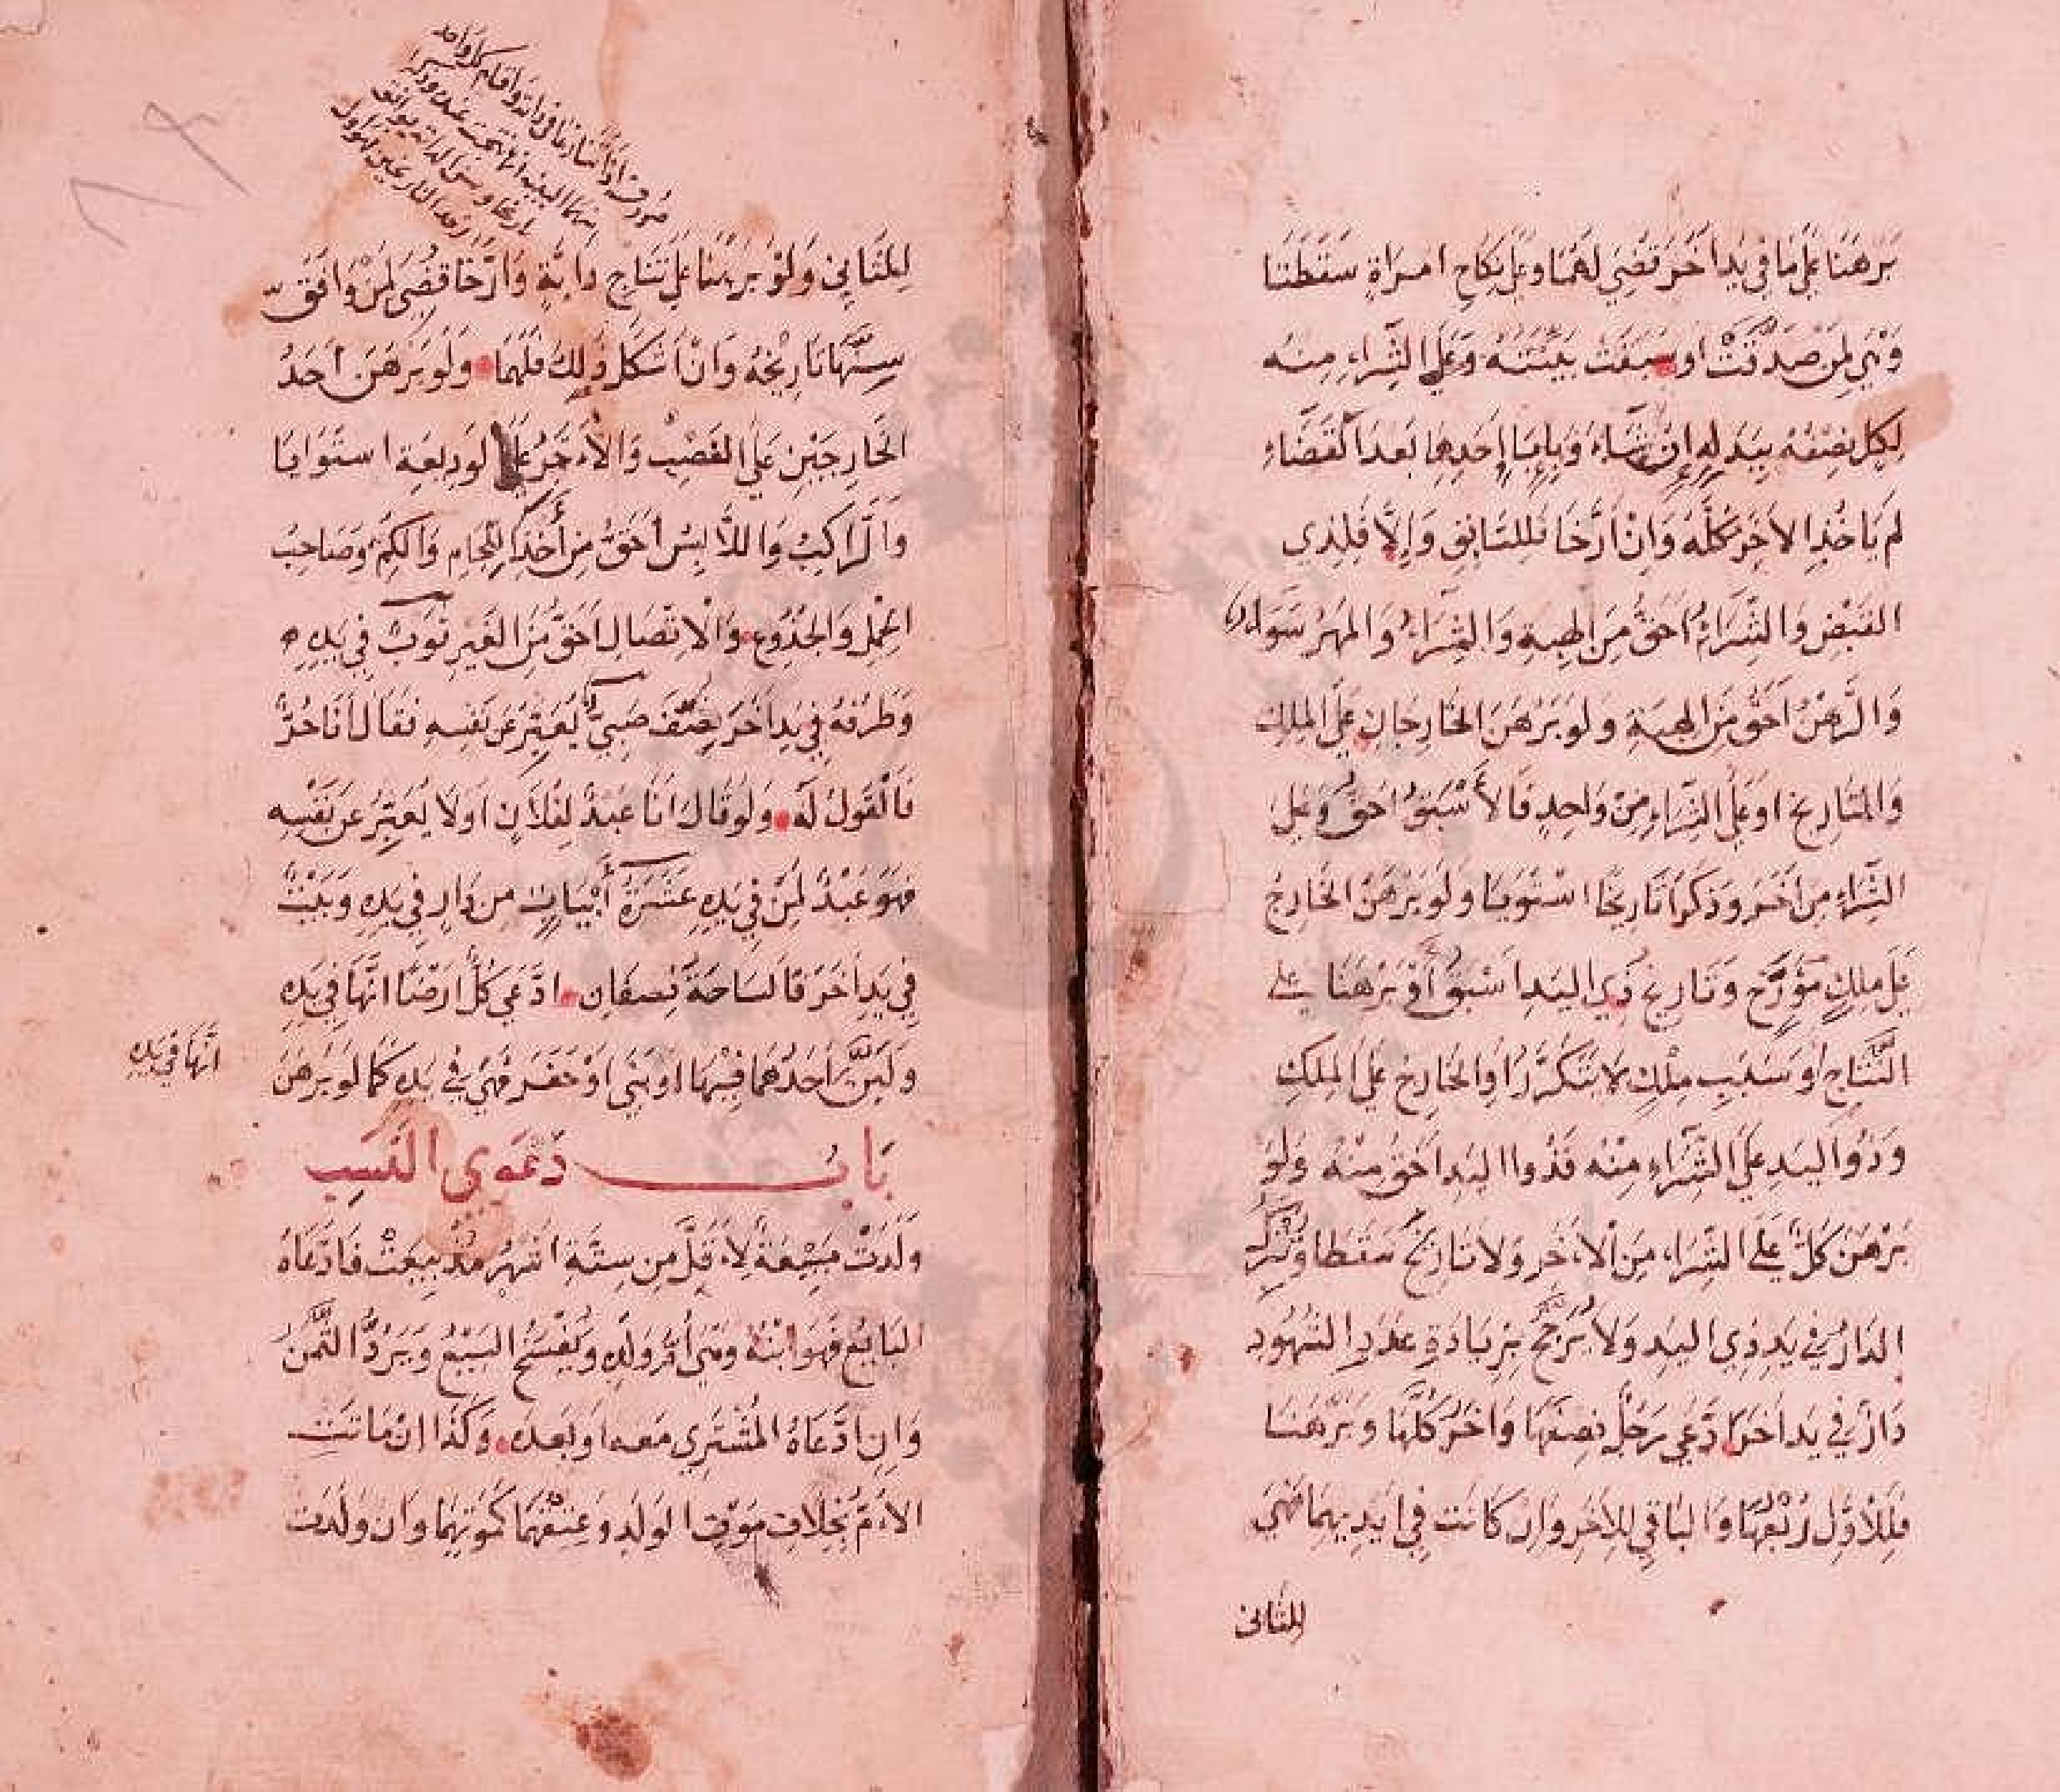 بَرْهَنَا عَلَى مَا فِي يَدِ اٰخَرَ قُضِيَ لَهُمَا وعلى نِكَاحِ امرَاةٍ سَقَطَتَا
وَهِيَ لِمَنْ صَدَّقَتْ او سبقت بَيّنَتُهُ وَعَلَى الشِّرَاءِ مِنْهُ
لِكلٍ نِصْفُهُ بِبَدَلِهِ اِنْ شَاءَ وَبِاِبَاءِ اِحَدِهِما بَعدَ القَضَاءِ
لم يَاخُذِ الاٰخَرُ كُلَّهُ وَانْ اَرَّخَا فللسَّابِقِ وَاِلَّا فَلِذِي
القَبْضِ وَالشِّرَاءُ اَحَقُّ مِنَ الهِبَةِ وَالشِّرَاءُ وَالمَهْرُ سَوَاء
وَالرَّهْنُ اَحَقُّ مِنَ الهِبَةِ ولو بَرْهَنَ الخَارِجَانِ عَلَى المِلكِ
وَالتَّارِيخِ او عَلَى الشِّرَاءِ مِنْ وَاحِدٍ فَالأَسْبَقُ اَحَقُّ وَعَلَى
الشِّرَاءِ مِن اٰخَرَ وَذَكَرَا تَارِيخًا اسْتَوَيَا ولو بَرْهَنَ الخَارِجُ
عَلَى مِلكٍ مُؤَرَّخٍ وَتَارِيخُ ذِي اليَدِ اَسْبَقُ أَوْ بَرْهَنَا على
النِّتَاجِ اَو سَبَبِ مِلْكٍ لا يَتَكَرَّرُ اَوِ الخَارِجُ عَلَى المِلكِ
وَذُو اليَدِ عَلَى الشِّرَاءِ مِنْهُ فَذُوا اليَدِ اَحَقُّ مِنْهُ وَلَوْ
بَرْهَنَ كلٌ عَلَى الشِّرَاءِ مِنَ الاٰخَرِ وَلا تَارِيخَ سَقَطَا وَتُتْرَكُ
الدَارُ فِي يَدِ ذِي اليَدِ وَلا يُرَجَّحُ بِزِيَادَةِ عَدَدِ الشُهُودِ
دَارٌ في يَدِ اٰخَرَ ادَّعَى رَجُلٌ نِصْفَهَا وَاٰخَرُ كُلَّهَا وَبَرْهَنَا
فَلِلْاَوَّلِ رُبْعُهَا وَالبَاقِي لِلاٰخَرِ وَان كَانَت فِي اَيْدِيهِمَا فَهِيَ
للثانى
صُورَتُه اذا تنازعا فى دابة واقام كل واحد
منهما البينة انها نتجت عنده وذكرا
لِلثَّانِي وَلَوْ بَرْهَنَا عَلَى نِتَاجِ دَابَّةٍ وَاَرَّخَا قُضِيَ لِمَنْ وَافَقَ
سِنُّهَا تَارِيْخَهُ وَانْ اَشْكَلَ ذٰلِكَ فَلَهُمَا وَلَو بَرْهَنَ اَحَدُ
الخَارِجَيْنِ عَلَى الغَصْبِ وَالاٰخَرُ عَلَى الوَدِيعَةِ استَوَيَا
وَالرَّاكِبُ وَاللَّابِسُ اَحَقُّ مِنْ أَخَذَ اللِّجَامِ وَالكُمِّ وَصَاحِبُ
الحِمْلِ وَالجُذُوْعِ وَالْاِتِّصَالِ اَحَقُّ مِنَ الغَيْرِ ثَوْبٌ فِي يَدِهِ
وَطَرَفُهُ فِي يَدِ اٰخَرَ نُصِّفَ صَبِيٌّ يُعَبِّرُ عَن نَفْسِهِ فَقَالَ اَنَا حُرٌّ
فَالْقَولُ لَه وَلَو قَالَ اَنَا عَبْدٌ لِفُلَانٍ اَو لَا يُعَبِّرُ عَن نَفْسِهِ
فهو عَبْدٌ لِمَنْ فِي يَدِهِ عَشَرَةُ أَبْيَاتٍ مِن دَارٍ فِي يَدِهِ وَبَيْتٌ
فِي يَدِ اٰخَرَ فَالسَاحَةُ نِصفَانِ ادَّعَى كُلٌّ ارضًا انَّهَا فِي يَدِهِ
وَلَبَّنَ اَحَدُهُمَا فِيْهَا اَو بَنَى اَوْ حَفَرَ فهِيَ فِي يَدِهِ كَمَا لَو بَرْهَنَ
انَّهَا فِي يَدِهِ
بَابُ دَعْوَى النَّسَبِ
وَلَدَتْ مَبِيْعَةٌ لِاَقَلَّ مِن سِتَّةِ اَشْهُرٍ مُذْ بِيعَتْ فَادَّعَاهُ
البَايِعُ فَهُوَ ابْنُهُ وَهِيَ اُمُّ وَلَدِهِ وَيُفْسَخُ البَيْعُ وَيُرَدُّ الثَّمَنُ
وَاِنِ ادَّعَاهُ المُشْتَرِي مَعَهُ اَو بَعدَهُ وَكَذَا اِنْ مَاتَتِ
الاُمُّ بِخِلافِ مَوْتِ الوَلَدِ وَعِتْقُهُمَا كَمَوْتِهِمَا وان وَلَدَت